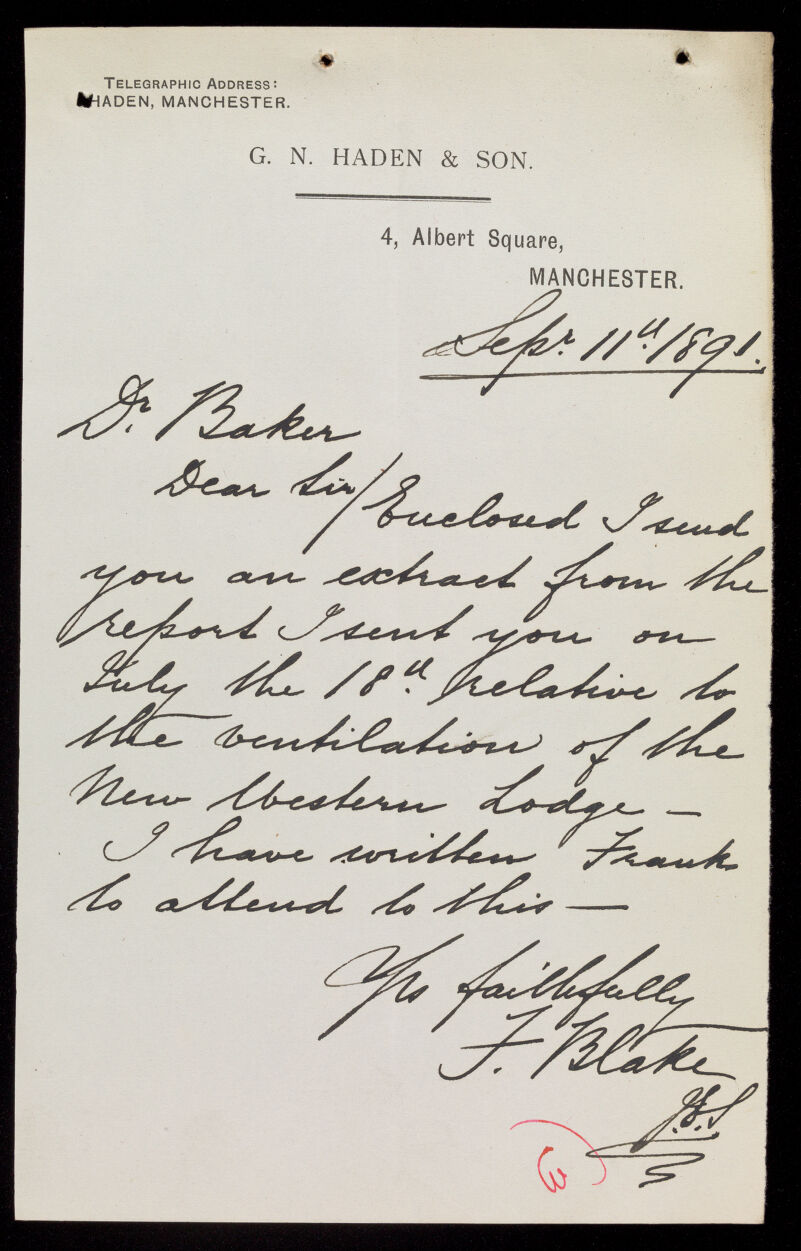 TELEGRAPHIC ADDRESS:
HADEN, MANCHESTER.
G. N. HADEN & SON.
4, Albert Square,
MANCHESTER.
Sepr. 11th 1891.
Dr. Baker
Dear Sir / Enclosed I send
you an extract from the
report I sent you on
July the 18th relative to
the ventilation of the
New Western Lodge —
I have written Frank
to attend to this —
Yrs faithfully
F. Blake